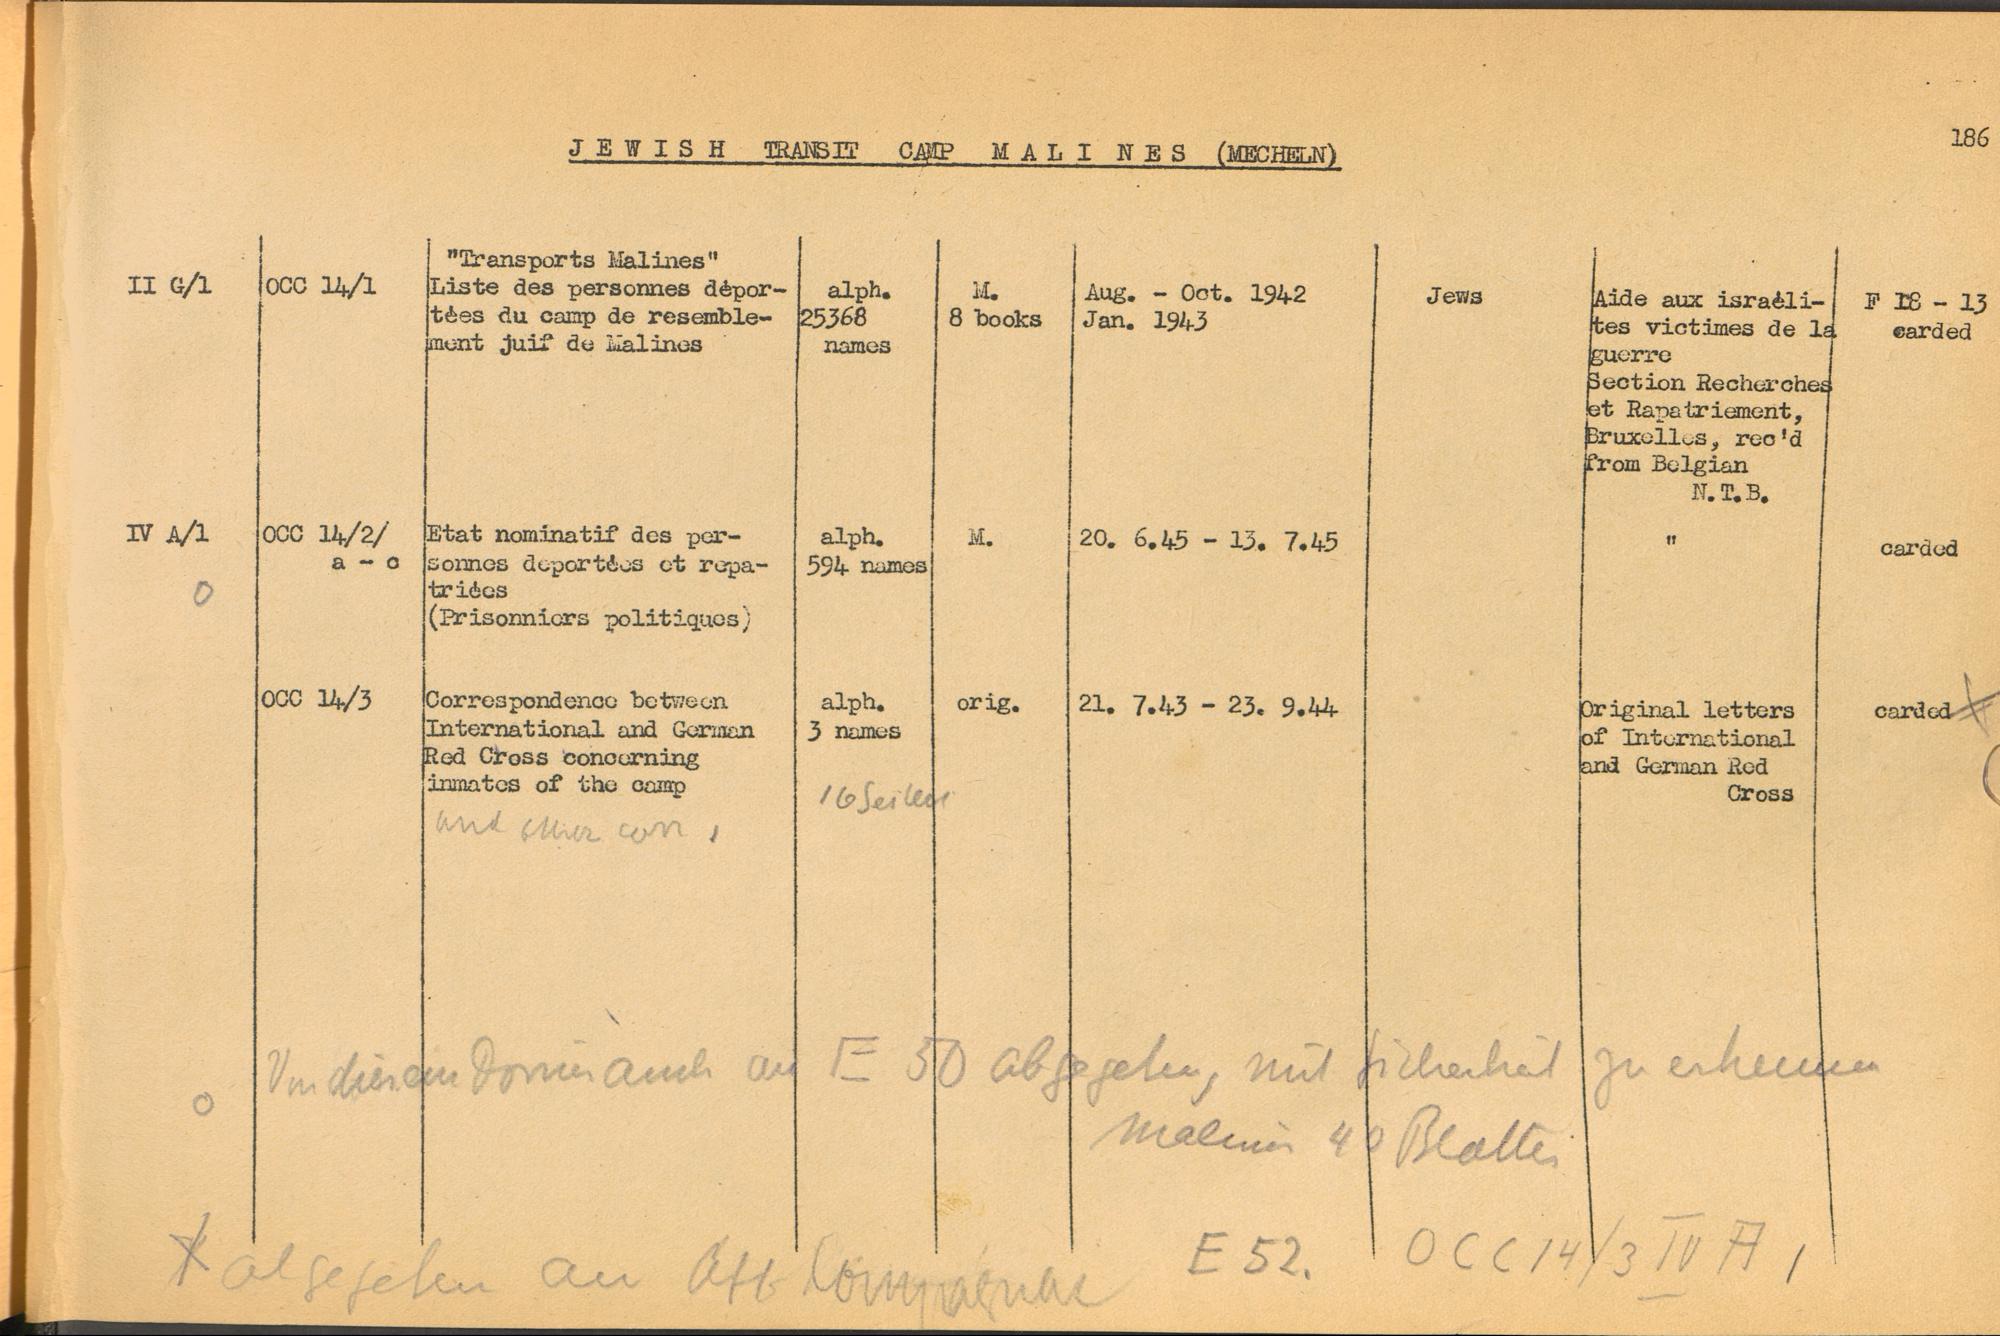 186
JEWISH TRANSIT CAMP MALINES (MECHELN)
II G/1
OCC 14/1
"Transports Malines"
Liste des personnes dépor-
tées du camp de resemble-
ment juif de Malines
alph.
25368
names
M.
8 books
Aug. - Oct. 1942
Jan. 1943
Jews
Aide aux israéli-
tes victimes de la
guerre
Section Recherches
et Rapatriement,
Bruxelles, rec'd
from Belgian
N.T.B.
F 18 - 13
carded
IV A/1
OCC 14/2/
a - c
Etat nominatif des per-
sonnes deportées et repa-
triées
(Prisonniers politiques)
alph.
594 names
M.
20. 6.45 - 13. 7.45
"
carded
O
OCC 14/3
Correspondence between
International and German
Red Cross concerning
inmates of the camp
and other corr.
alph.
3 names
16 Seiten
orig.
21. 7.43 - 23. 9.44
Original letters
of International
and German Red
Cross
carded
O
Von diesem auch an E 50 abgegeben, mit Sicherheit zu erkennen
Malines 40 Blätter
abgegeben an
E 52. OCC 14/3 IV A 1